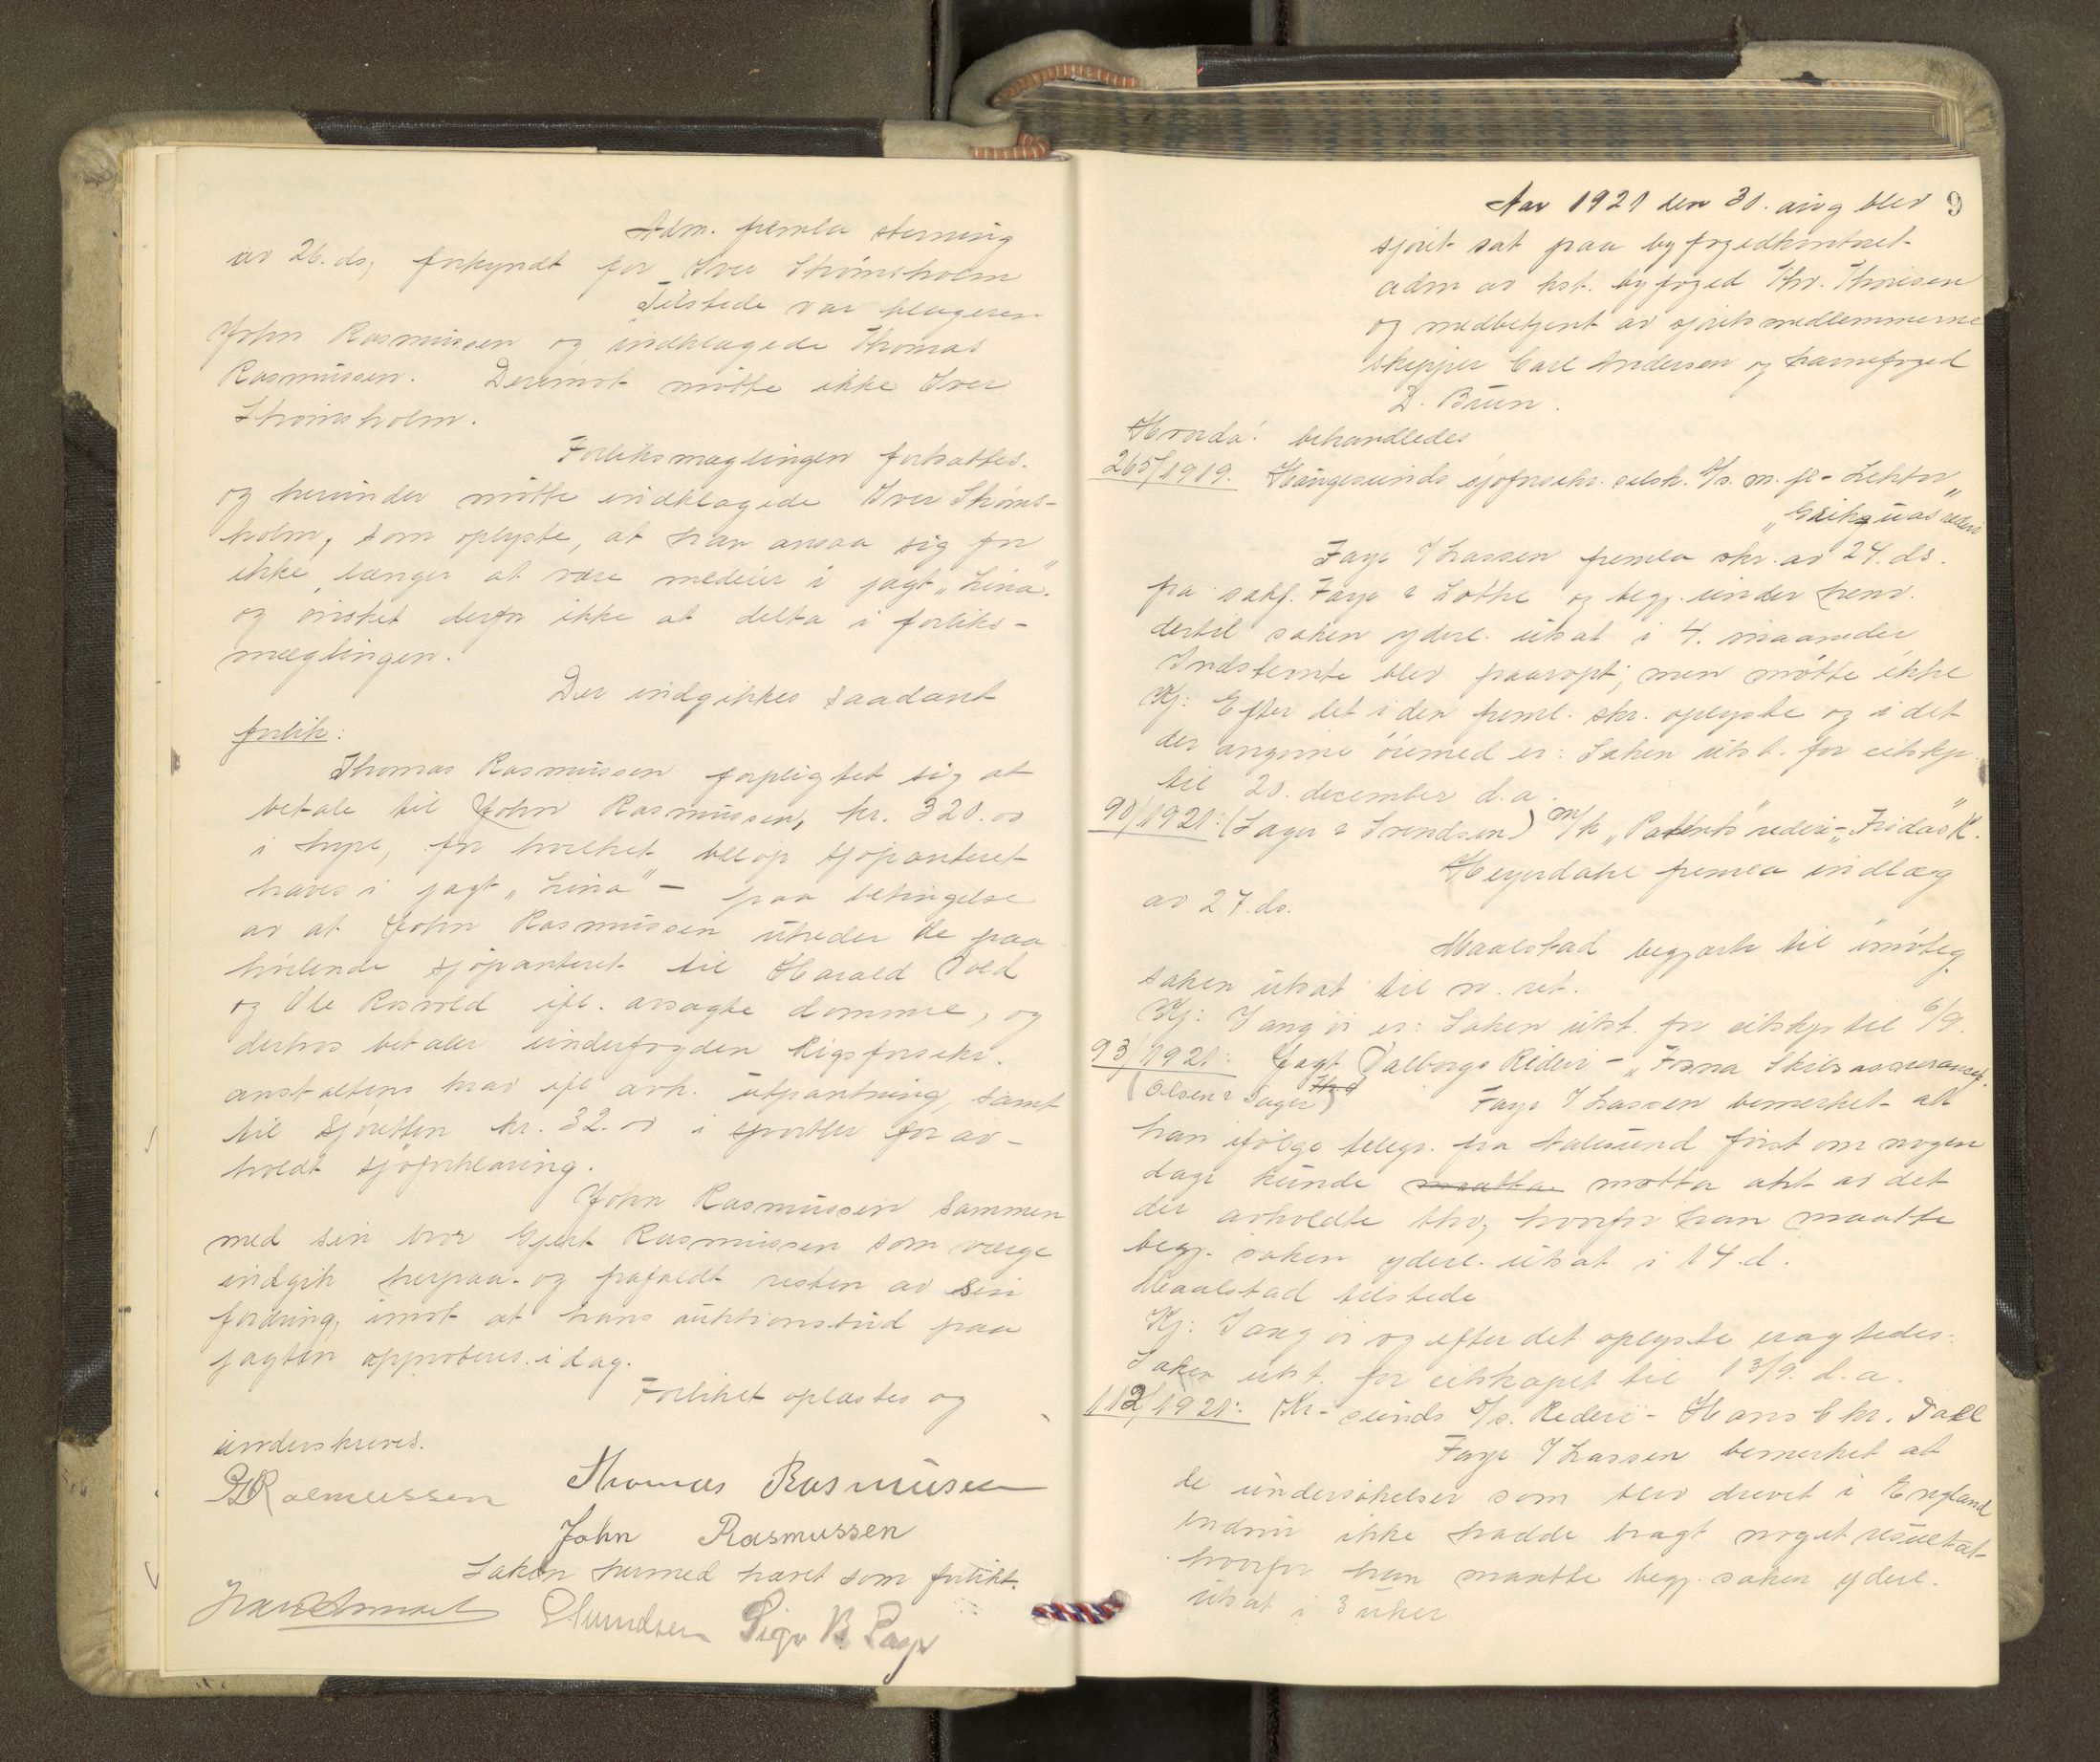 Adm. fremla stevning
av 26. ds, forkyndt for Iver Strømsholm
Tilstede var klageren
John Rasmussen og indklagede Thomas
Rasmussen. Derimot møtte ikke Iver
Strømsholm.
Forliksmæglingen fortsattes.
og herunder møtte indklagede Iver Strøms-
holm, som oplyste, at han ansaa sig for
ikke længer at være medeier i jagt „Lina".
og ønsket derfor ikke at delta i forliks-
mæglingen.
Der indgikkes saadant
forlik:
Thomas Rasmussen forpligtet sig at
betale til John Rasmussen, kr. 320.00
i hyre, for hvilket beløp sjøpanteret
haves i jagt „Lina" – paa betingelse
av at John Rasmussen utreder de paa
hvilende sjøpanteret til Harald Vold
og Ole Rosvold ifl. avsagte domme, og
derhos betaler underfogden Rigsforsikr.
anstaltens krav ifl avh. utpantning, samt
til Sjøretten kr. 32.00 i sportler for av-
holdt sjøforklaring.
John Rasmussen sammen
med sin bror Gjert Rasmussen som værge
indgik herpaa og frafaldt resten av sin
fordring, imot at hans auktionsbud paa
jagten approberes i dag.
Forliket oplæstes og
underskreves.
G Rasmussen Thomas Rasmusen
John Rasmussen
Saken hermed hævet som forlikt.
Sigv B.
Aar 1921 den 30. aug blev 9
sjøret sat paa byfogedkontoret
adm av kst. byfoged Thv. Thoresen
og medbetjent av sjøretsmedlemmerne
skipper Carl Andersen og havnefoged
D. Bruun.
Hvorda: behandledes
265/1919. Haugesunds sjøforsikr. selsk. A/s. m. fl – Lekter
„Grikquas" rederi
Faye f Lassen fremla skr. av 24. ds.
fra sakf. Faye & Lothe og begj. under henv.
dertil saken yderl. utsat i 4. maaneder
Indstevnte blev paaropt, men møtte ikke
Kj: Efter det i den freml. skr. oplyste og i det
der angivne øiemed er: Saken utst. for eitskp.
til 20. december d.a.
90/1921: (Sager & Svendsen) m/k „Patents" rederi – „Fridas" R.
Heyerdahl fremla indlæg
av 27. ds.
Maalstad begjærte til imøteg.
saken utsat til n. ret.
Kj: I ang øi er: Saken utst. for eitskp til 6/9.
93/1921: Jagt Valborgs Rederi – „Fosna Skibsassurancef.
(Olsen & Sager)
Faye f Lassen bemerket at
han ifølge telegr. fra Aalesund først om nogen
dage kunde maatta motta akt av det
der avholdte thv, hvorfor han maatte
begj. saken yderl. utsat i 14. d.
Maalstad tilstede
Kj: I ang øi og efter det oplyste eragtedes:
Saken utst. for eitskapet til 13/9. d.a.
112/1921: Kr-sunds A/s. Rederi – Hans Chr. Dall
Faye f Lassen bemerket at
de undersøkelser som blev drevet i England
endnu ikke hadde bragt noget resultat
hvorfor han maatte begj. saken yderl.
utsat i 3 uker